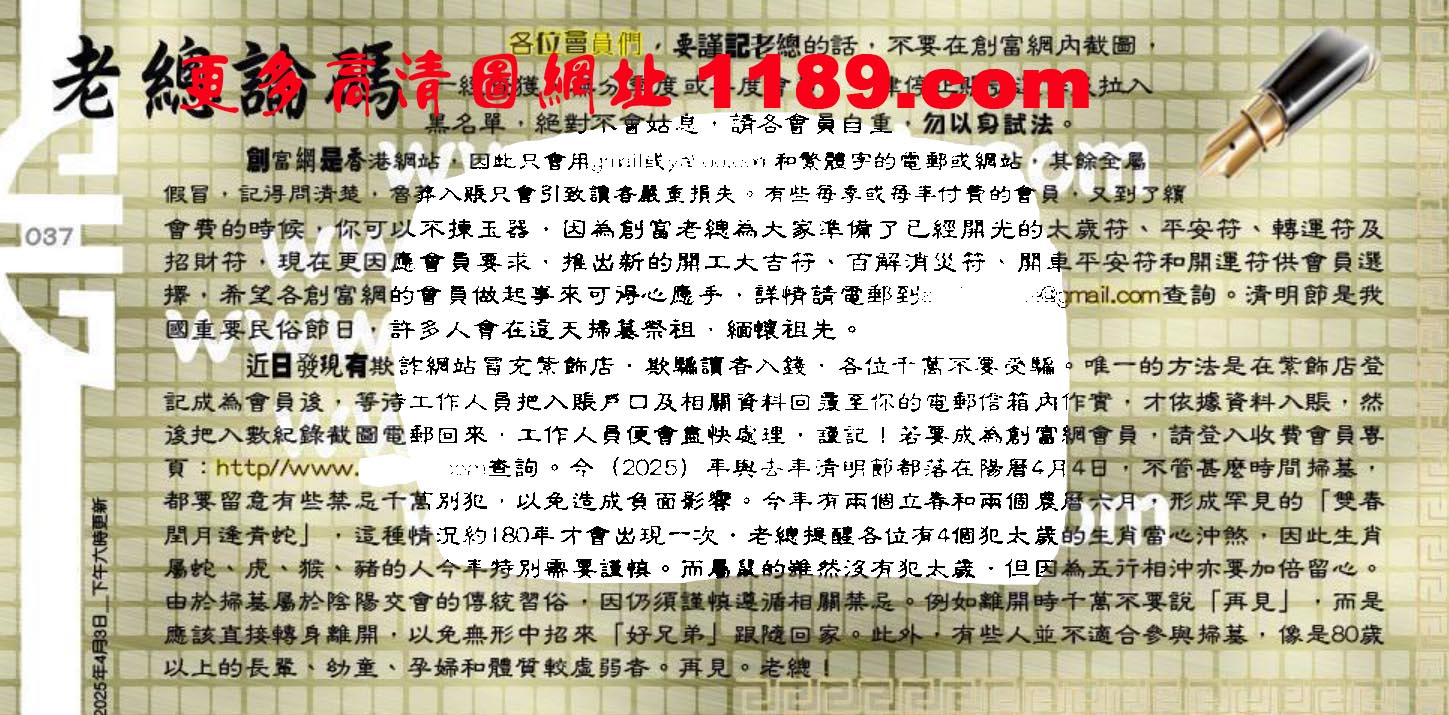 老總論碼
更多高清圖網址 1189.com
各位會員們，要謹記老總的話，不要在創富網內截圖，
一經 獲 分 度或 度會 停止 拉入
黑名單，絕對不會姑息，請各會員自重，勿以身試法。
創富網是香港網站，因此只會用gmail或 和繁體字的電郵或網站，其餘全屬
假冒，記得問清楚，魯莽入賬只會引致讀者嚴重損失。有些每季或每年付費的會員，又到了續
會費的時候，你可以不揀玉器，因為創富老總為大家準備了已經開光的太歲符、平安符、轉運符及
招財符，現在更因應會員要求，推出新的開工大吉符、百解消災符、開車平安符和開運符供會員選
擇，希望各創富網的會員做起事來可得心應手，詳情請電郵到 @gmail.com查詢。清明節是我
國重要民俗節日，許多人會在這天掃墓祭祖，緬懷祖先。
近日發現有欺詐網站冒充紫飾店，欺騙讀者入錢，各位千萬不要受騙。唯一的方法是在紫飾店登
記成為會員後，等待工作人員把入賬戶口及相關資料回覆至你的電郵信箱內作實，才依據資料入賬，然
後把入數紀錄截圖電郵回來，工作人員便會盡快處理，謹記！若要成為創富網會員，請登入收費會員專
頁：http//www. com查詢。今（2025）年與去年清明節都落在陽曆4月4日，不管甚麼時間掃墓，
都要留意有些禁忌千萬別犯，以免造成負面影響。今年有兩個立春和兩個農曆六月，形成罕見的「雙春
閏月逢青蛇」，這種情況約180年才會出現一次，老總提醒各位有4個犯太歲的生肖當心沖煞，因此生肖
屬蛇、虎、猴、豬的人今年特別需要謹慎。而屬鼠的雖然沒有犯太歲，但因為五行相沖亦要加倍留心。
由於掃墓屬於陰陽交會的傳統習俗，因仍須謹慎遵循相關禁忌。例如離開時千萬不要說「再見」，而是
應該直接轉身離開，以免無形中招來「好兄弟」跟隨回家。此外，有些人並不適合參與掃墓，像是80歲
以上的長輩、幼童、孕婦和體質較虛弱者。再見。老總！
037
2025年4月3日__下午六時更新